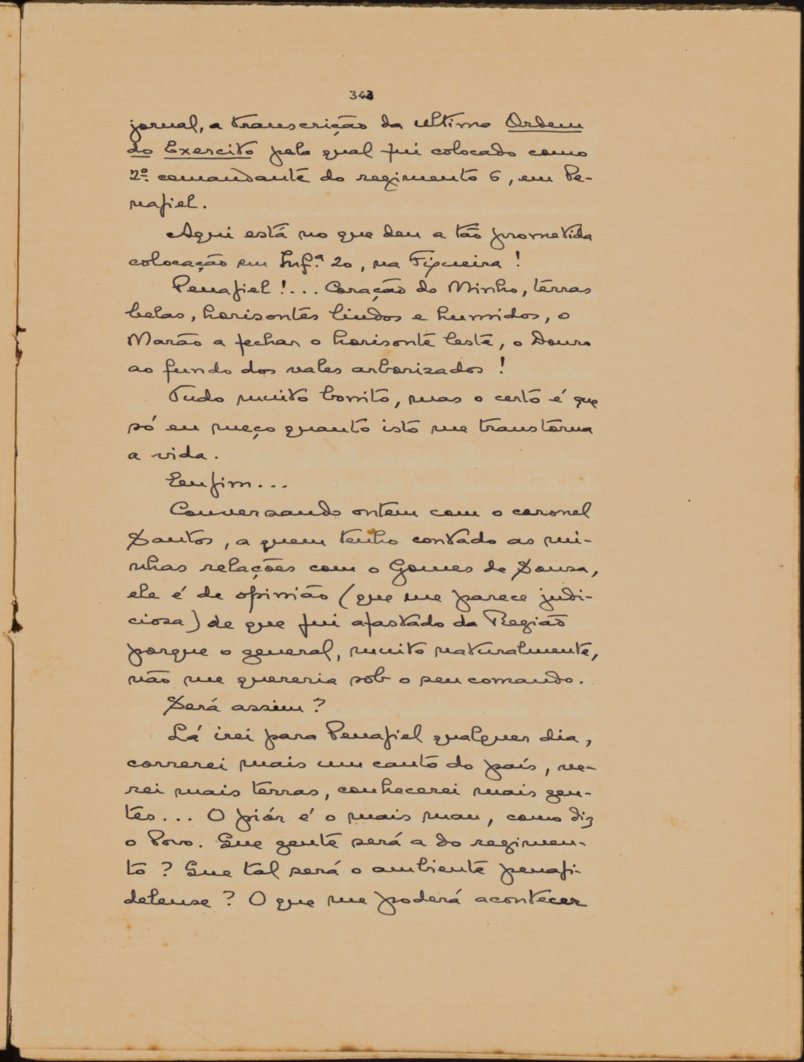 343
jornal, a transcrição da ultima Ordem
do Exercito pela qual fui colocado como
2º comandante do regimento 6, em Pe-
nafiel.
Aqui está no que deu a tão prometida
colocação em Inf.ª 20, na Figueira!
Penafiel!... Coração do Minho, terras
belas, horisontes lindos e humidos, o
Marão a fechar o horisonte leste, o Douro
ao fundo dos vales arborizados!
Tudo muito bonito, mas o certo é que
só eu meço quanto isto me transtorna
a vida.
Emfim...
Conversando ontem com o coronel
Santos, a quem tenho contado as mi-
nhas relações com o Gomes de Sousa,
ele é de opinião (que me parece judi-
ciosa) de que fui afastado da Região
porque o general, muito naturalmente,
não me quereria sob o seu comando.
Será assim?
Lá irei para Penafiel qualquer dia,
correrei mais um canto do país, ve-
rei mais terras, conhecerei mais gen-
tes... O piór é o mais mau, como diz
o Povo. Que gente será a do regimen-
to? Que tal será o ambiente penafi-
delense? O que me poderá acontecer